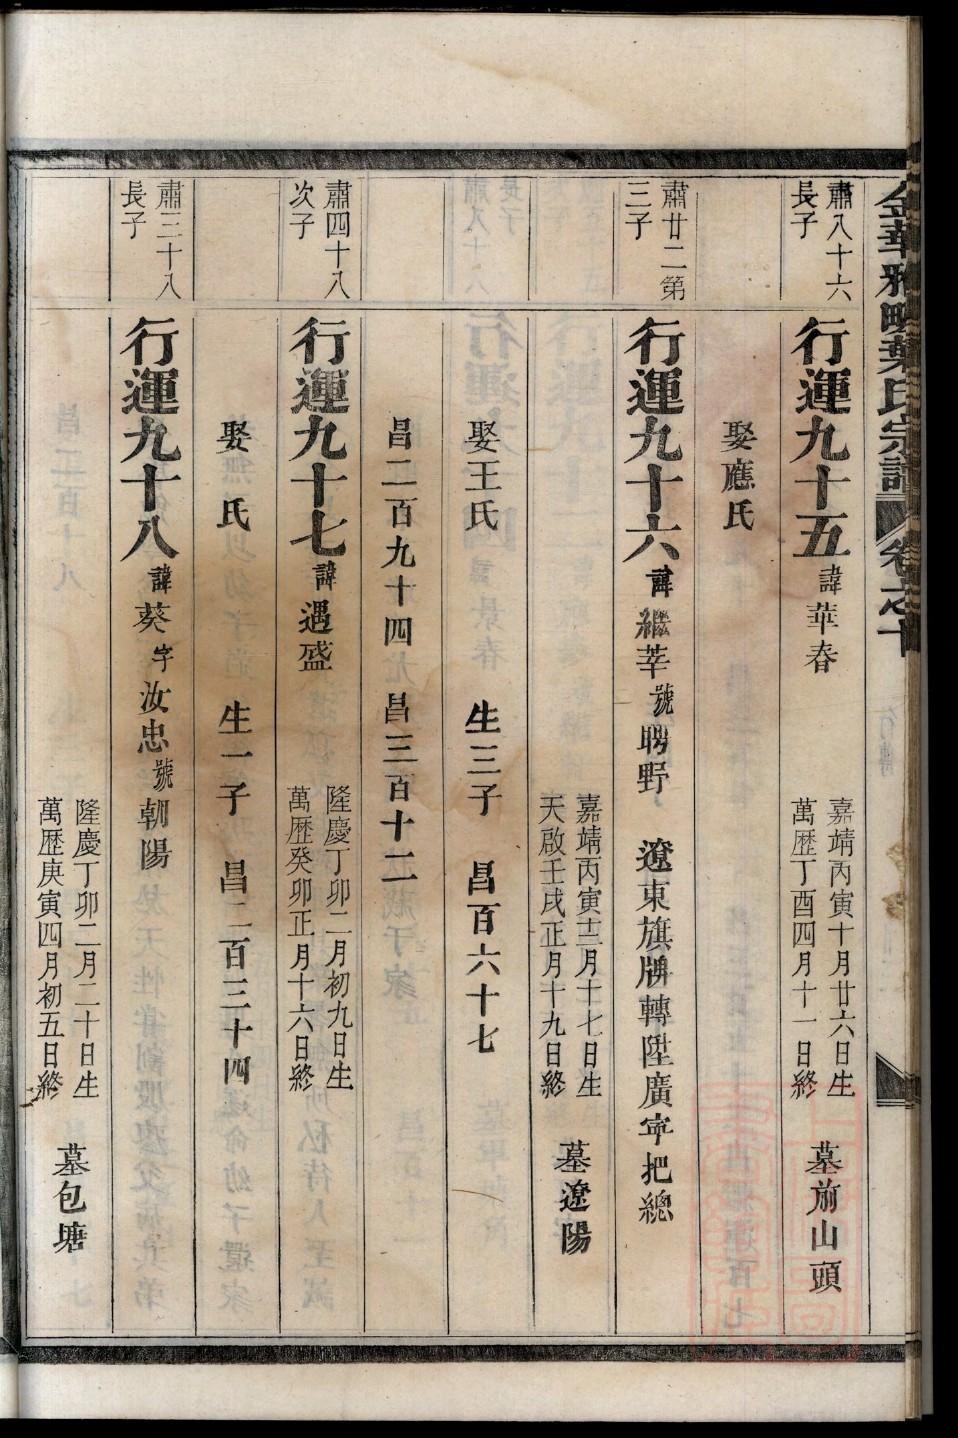 金華雅畈葉氏宗譜 卷之十
肅八十六
長子
行運九十五 諱華春
嘉靖丙寅十月廿六日生
萬歷丁酉四月十一日終
墓前山頭
娶應氏
肅廿二第
三子
行運九十六 諱繼莘號聘野 遼東旗牌轉陞廣寧把總
嘉靖丙寅十二月十七日生
天啟壬戌正月十九日終
墓遼陽
娶王氏 生三子 昌百六十七
昌二百九十四 昌三百十二
肅四十八
次子
行運九十七 諱遇盛
隆慶丁卯二月初九日生
萬歷癸卯正月十六日終
娶 氏 生一子 昌二百三十四
肅三十八
長子
行運九十八 諱葵字汝忠號朝陽
隆慶丁卯二月二十日生
萬歷庚寅四月初五日終
墓包塘